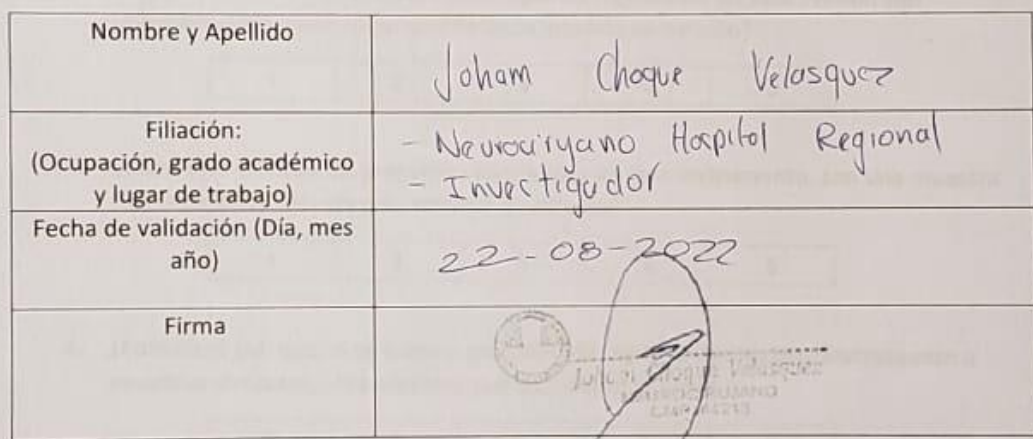 Nombre y Apellido
Joham Choque Velasquez
Filiación:
(Ocupación, grado académico
y lugar de trabajo)
- Neurocirujano Hospital Regional
- Investigador
Fecha de validación (Día, mes
año)
22-08-2022
Firma
Choque Velasquez